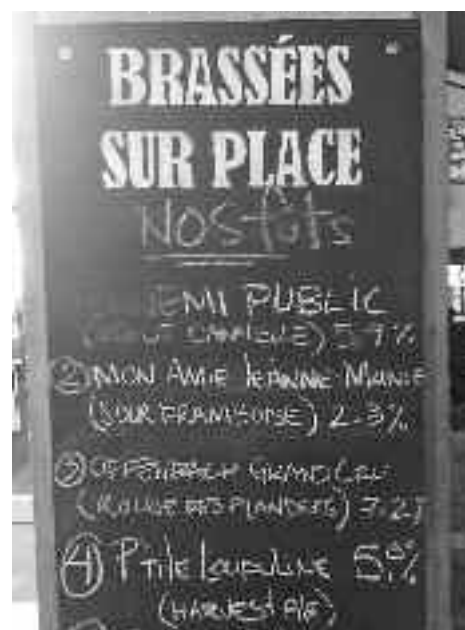 BRASSÉES
SUR PLACE
NOS fûts
EMI PUBLIC
② MON AMIE JEANNE MANCE
(SOUR FRAMBOISE) 2.3%
③ OFFENBACH GRAND CRU
(ROUGE DES FLANDRES) 7.2%
④ P'tite Louculine 5%
(HARVEST ALE)